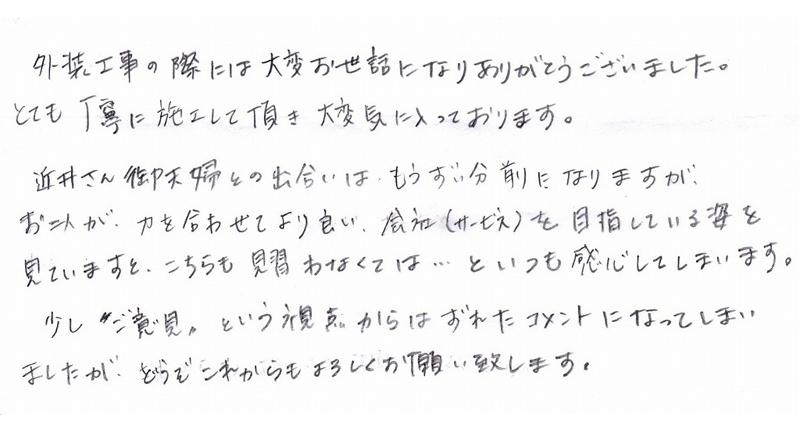 外装工事の際には大変お世話になりありがとうございました。
とても丁寧に施工して頂き大変気に入っております。
近井さん御夫婦との出合いは、もうずい分前になりますが、
お二人が、力を合わせてより良い、会社(サービス)を目指している姿を
見ていますと、こちらも見習わなくては…といつも感心してしまいます。
少し〝ご意見〟という視点からはずれたコメントになってしまい
ましたが、どうぞこれからもよろしくお願い致します。